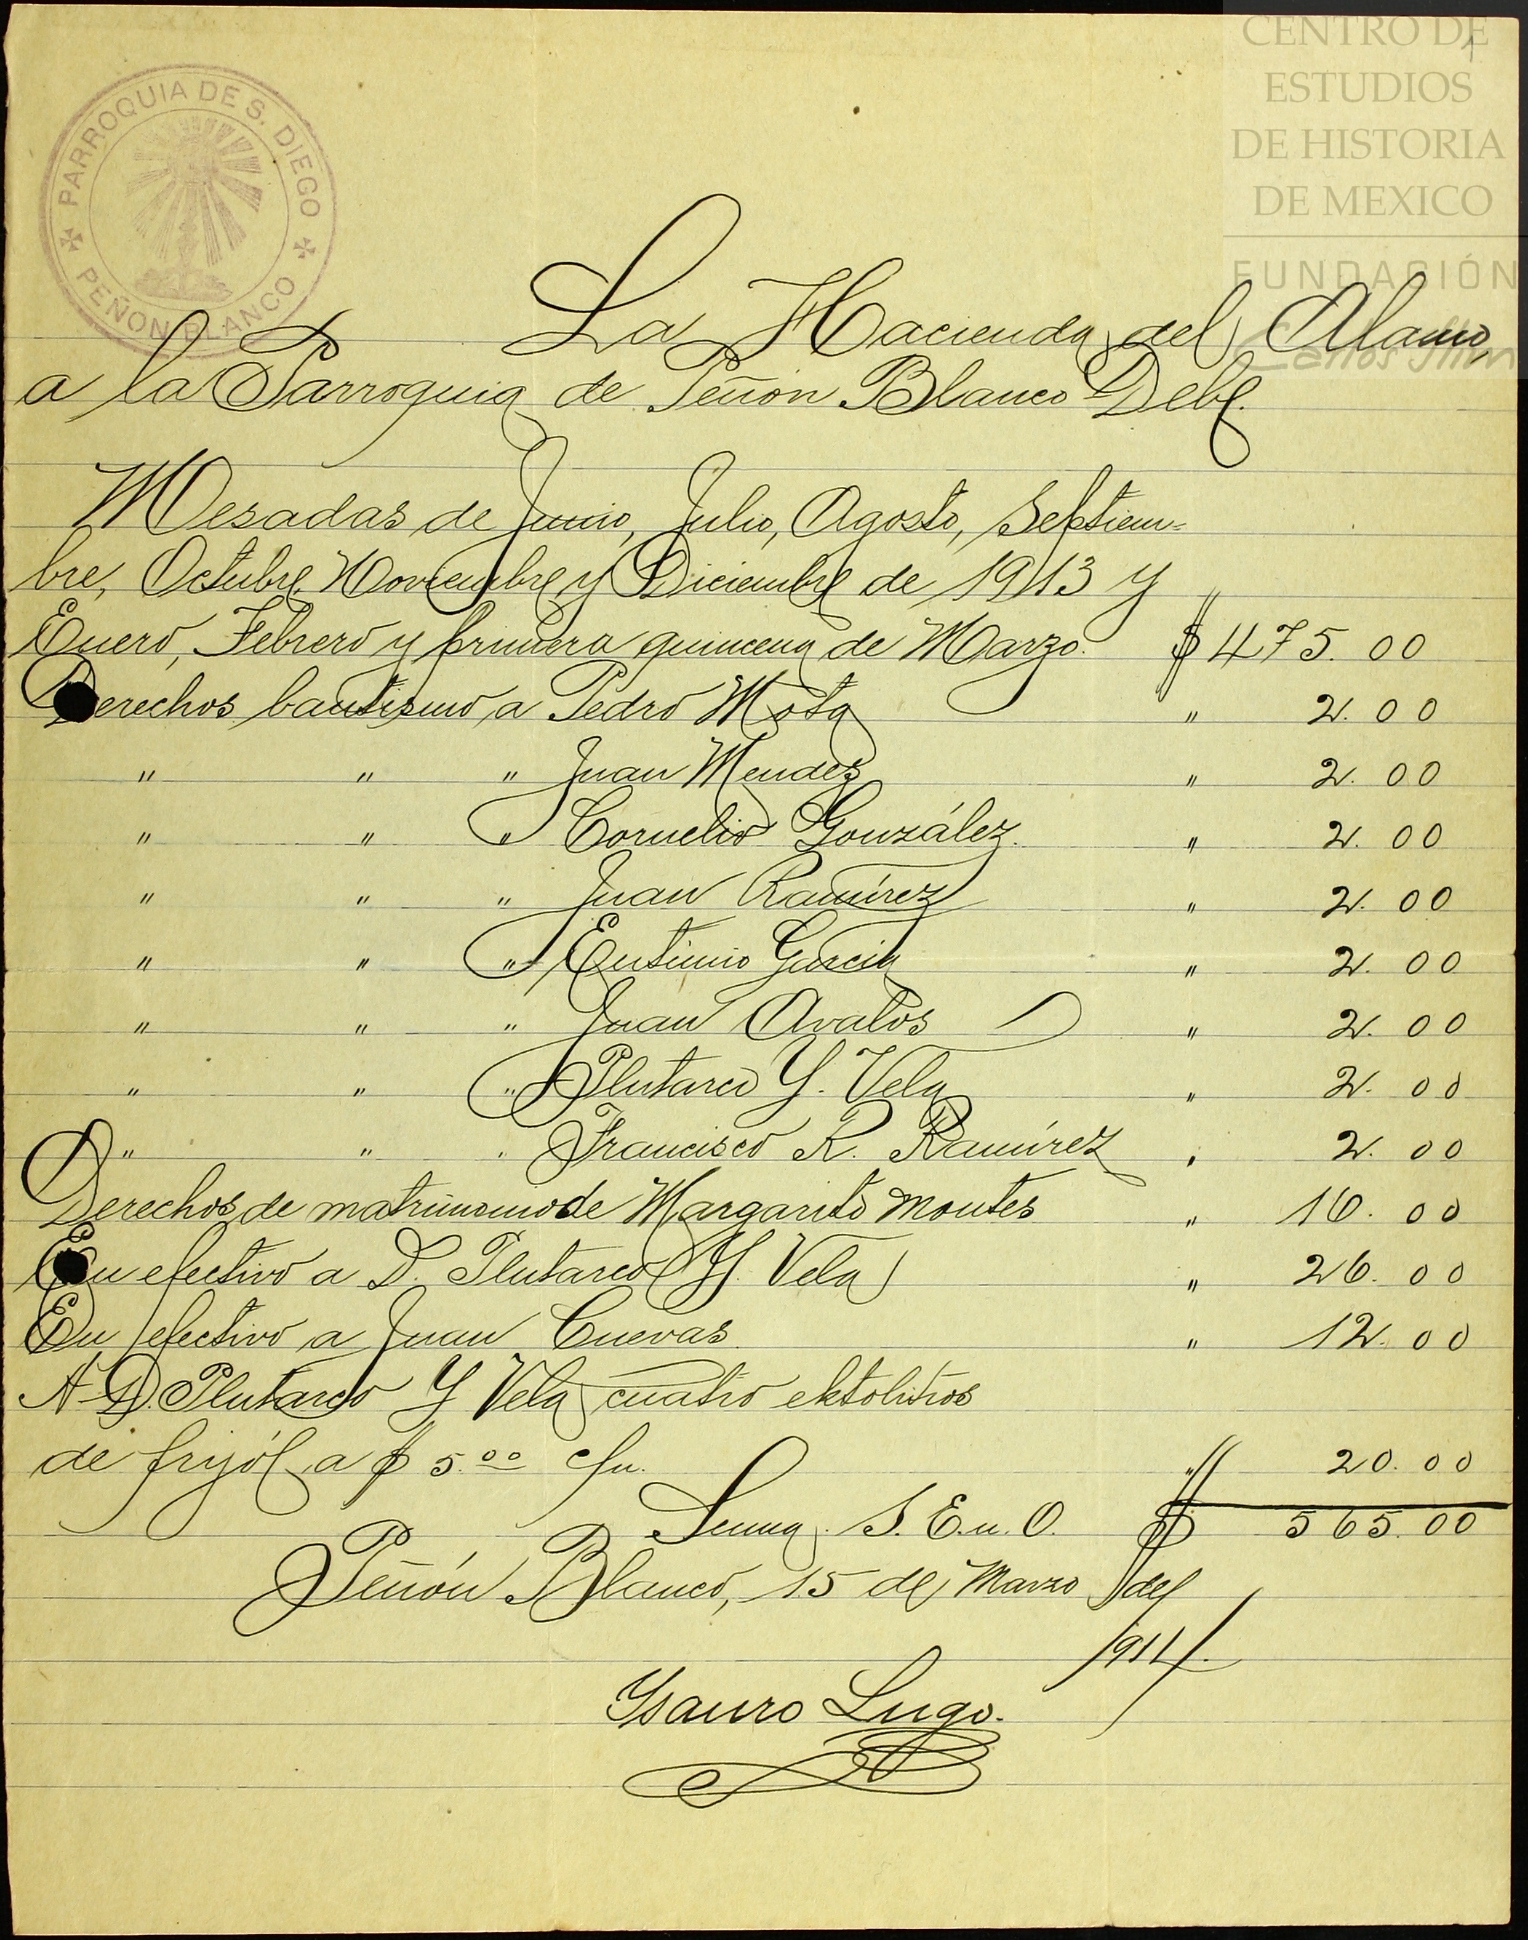 CENTRO DE
ESTUDIOS
DE HISTORIA
DE MEXICO
FUNDACIÓN
Carlos Slim
1
PARROQUIA DE S. DIEGO
PEÑON BLANCO
La Hacienda del Alamo,
a la Parroquia de Peñón Blanco Debe.
Mesadas de Junio, Julio, Agosto, Septiem=
bre, Octubre, Noviembre y Diciembre de 1913 y
Enero, Febrero y primera quincena de Marzo. $ 475.00
Derechos bautismo a Pedro Mota " 2.00
" " " Juan Mendez " 2.00
" " " Cornelio González. " 2.00
" " " Juan Ramírez " 2.00
" " " Eutimio Garcia " 2.00
" " " Juan Avalos " 2.00
" " " Plutarco Y. Vela " 2.00
" " " Francisco R. Ramírez " 2.00
Derechos de matrimonio de Margarito Montes " 16.00
En efectivo a D. Plutarco Y. Vela " 26.00
En efectivo a Juan Cuevas. " 12.00
A D. Plutarco Y Vela cuatro ektolitros
de frijól a $ 5.00 c/u. " 20.00
Suma. S. E. u. O. $ 565.00
Peñón Blanco, 15 de Marzo de
1914.
Ysauro Lugo.